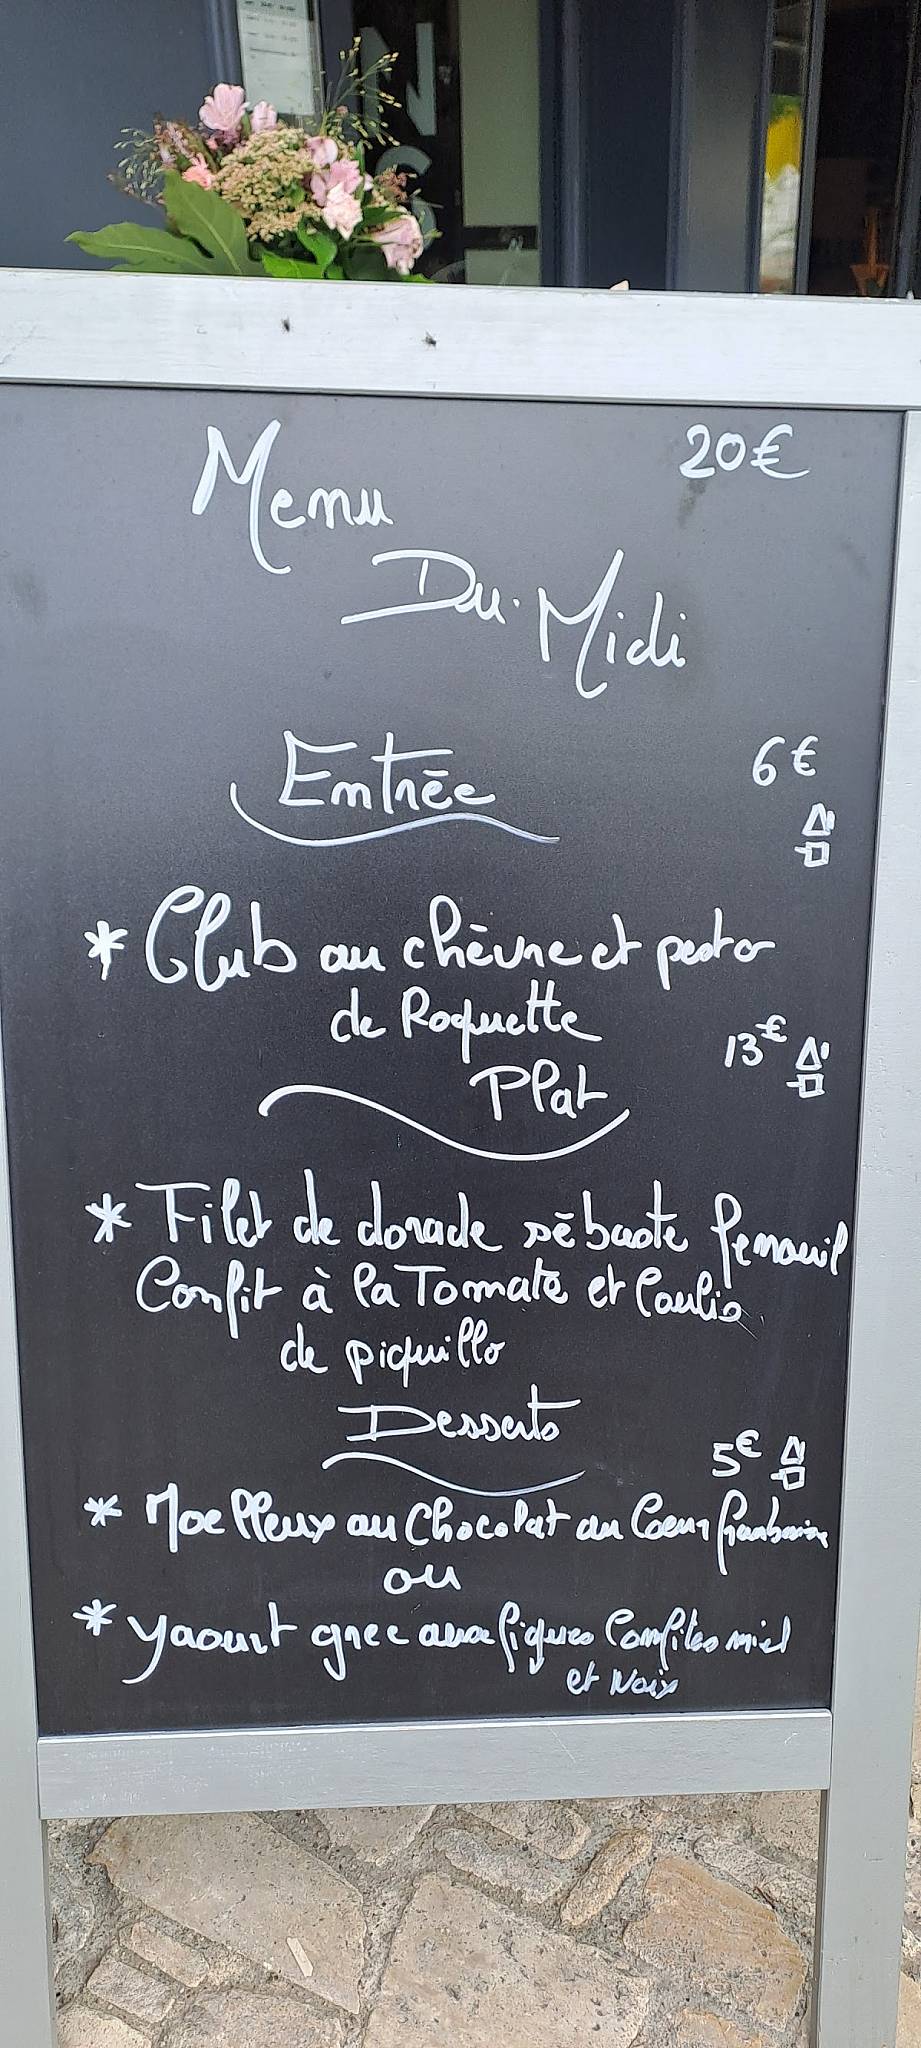 Menu 20€
Du Midi
Entrée 6€
* Club au chèvre et pesto
de Roquette
13€
Plat
* Filet de dorade sébaste fenouil
Confit à la Tomate et Coulis
de piquillo
Desserts
5€
* Moelleux au chocolat au Coeur framboise
ou
* yaourt grec aux figues Confites miel
et Noix